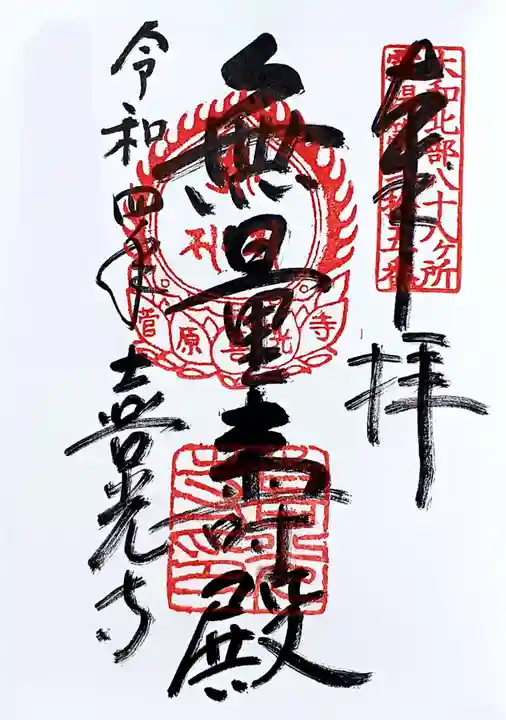 奉拝
大和北部八十八ヶ所
無量寿殿
菅原喜光寺
令和四年
喜光寺